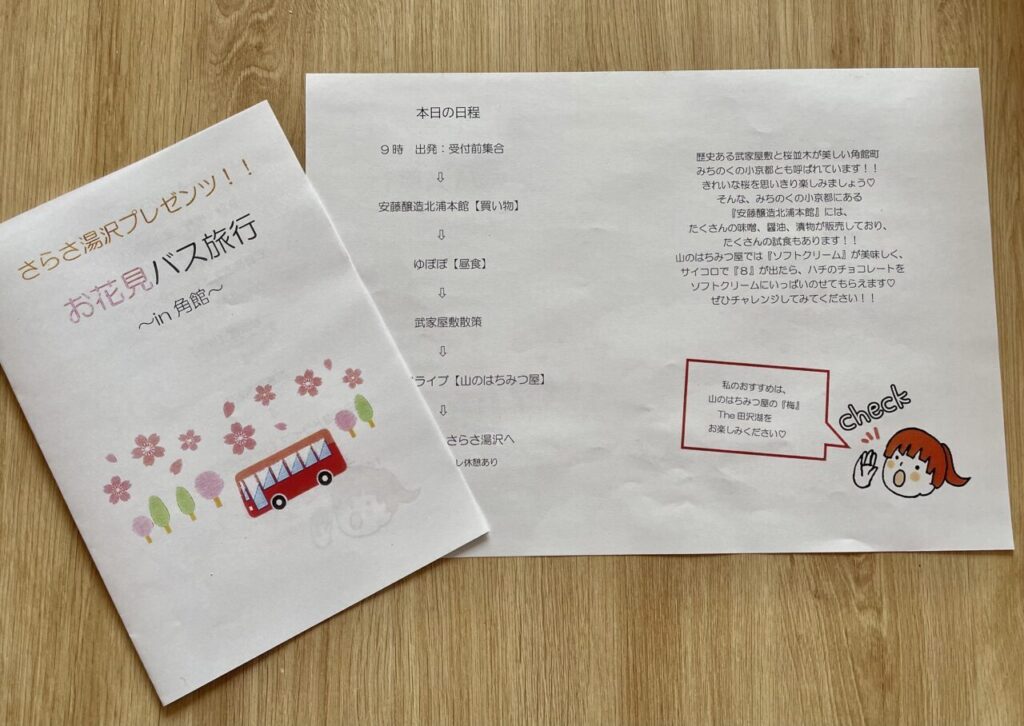 さらさ湯沢プレゼンツ！！
お花見バス旅行
～in 角館～
本日の日程
９時　出発：受付前集合
⇩
安藤醸造北浦本館【買い物】
⇩
ゆぽぽ【昼食】
⇩
武家屋敷散策
⇩
ライブ【山のはちみつ屋】
⇩
さらさ湯沢へ
レ休憩あり
歴史ある武家屋敷と桜並木が美しい角館町
みちのくの小京都とも呼ばれています！！
きれいな桜を思いきり楽しみましょう♡
そんな、みちのくの小京都にある
『安藤醸造北浦本館』には、
たくさんの味噌、醤油、漬物が販売しており、
たくさんの試食もあります！！
山のはちみつ屋では『ソフトクリーム』が美味しく、
サイコロで『８』が出たら、ハチのチョコレートを
ソフトクリームにいっぱいのせてもらえます♡
ぜひチャレンジしてみてください！！
私のおすすめは、
山のはちみつ屋の『梅』
The 田沢湖を
お楽しみください♡
check